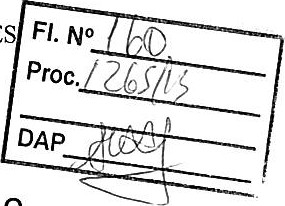 ES
Fl. Nº 160
Proc. 1265/13
DAP